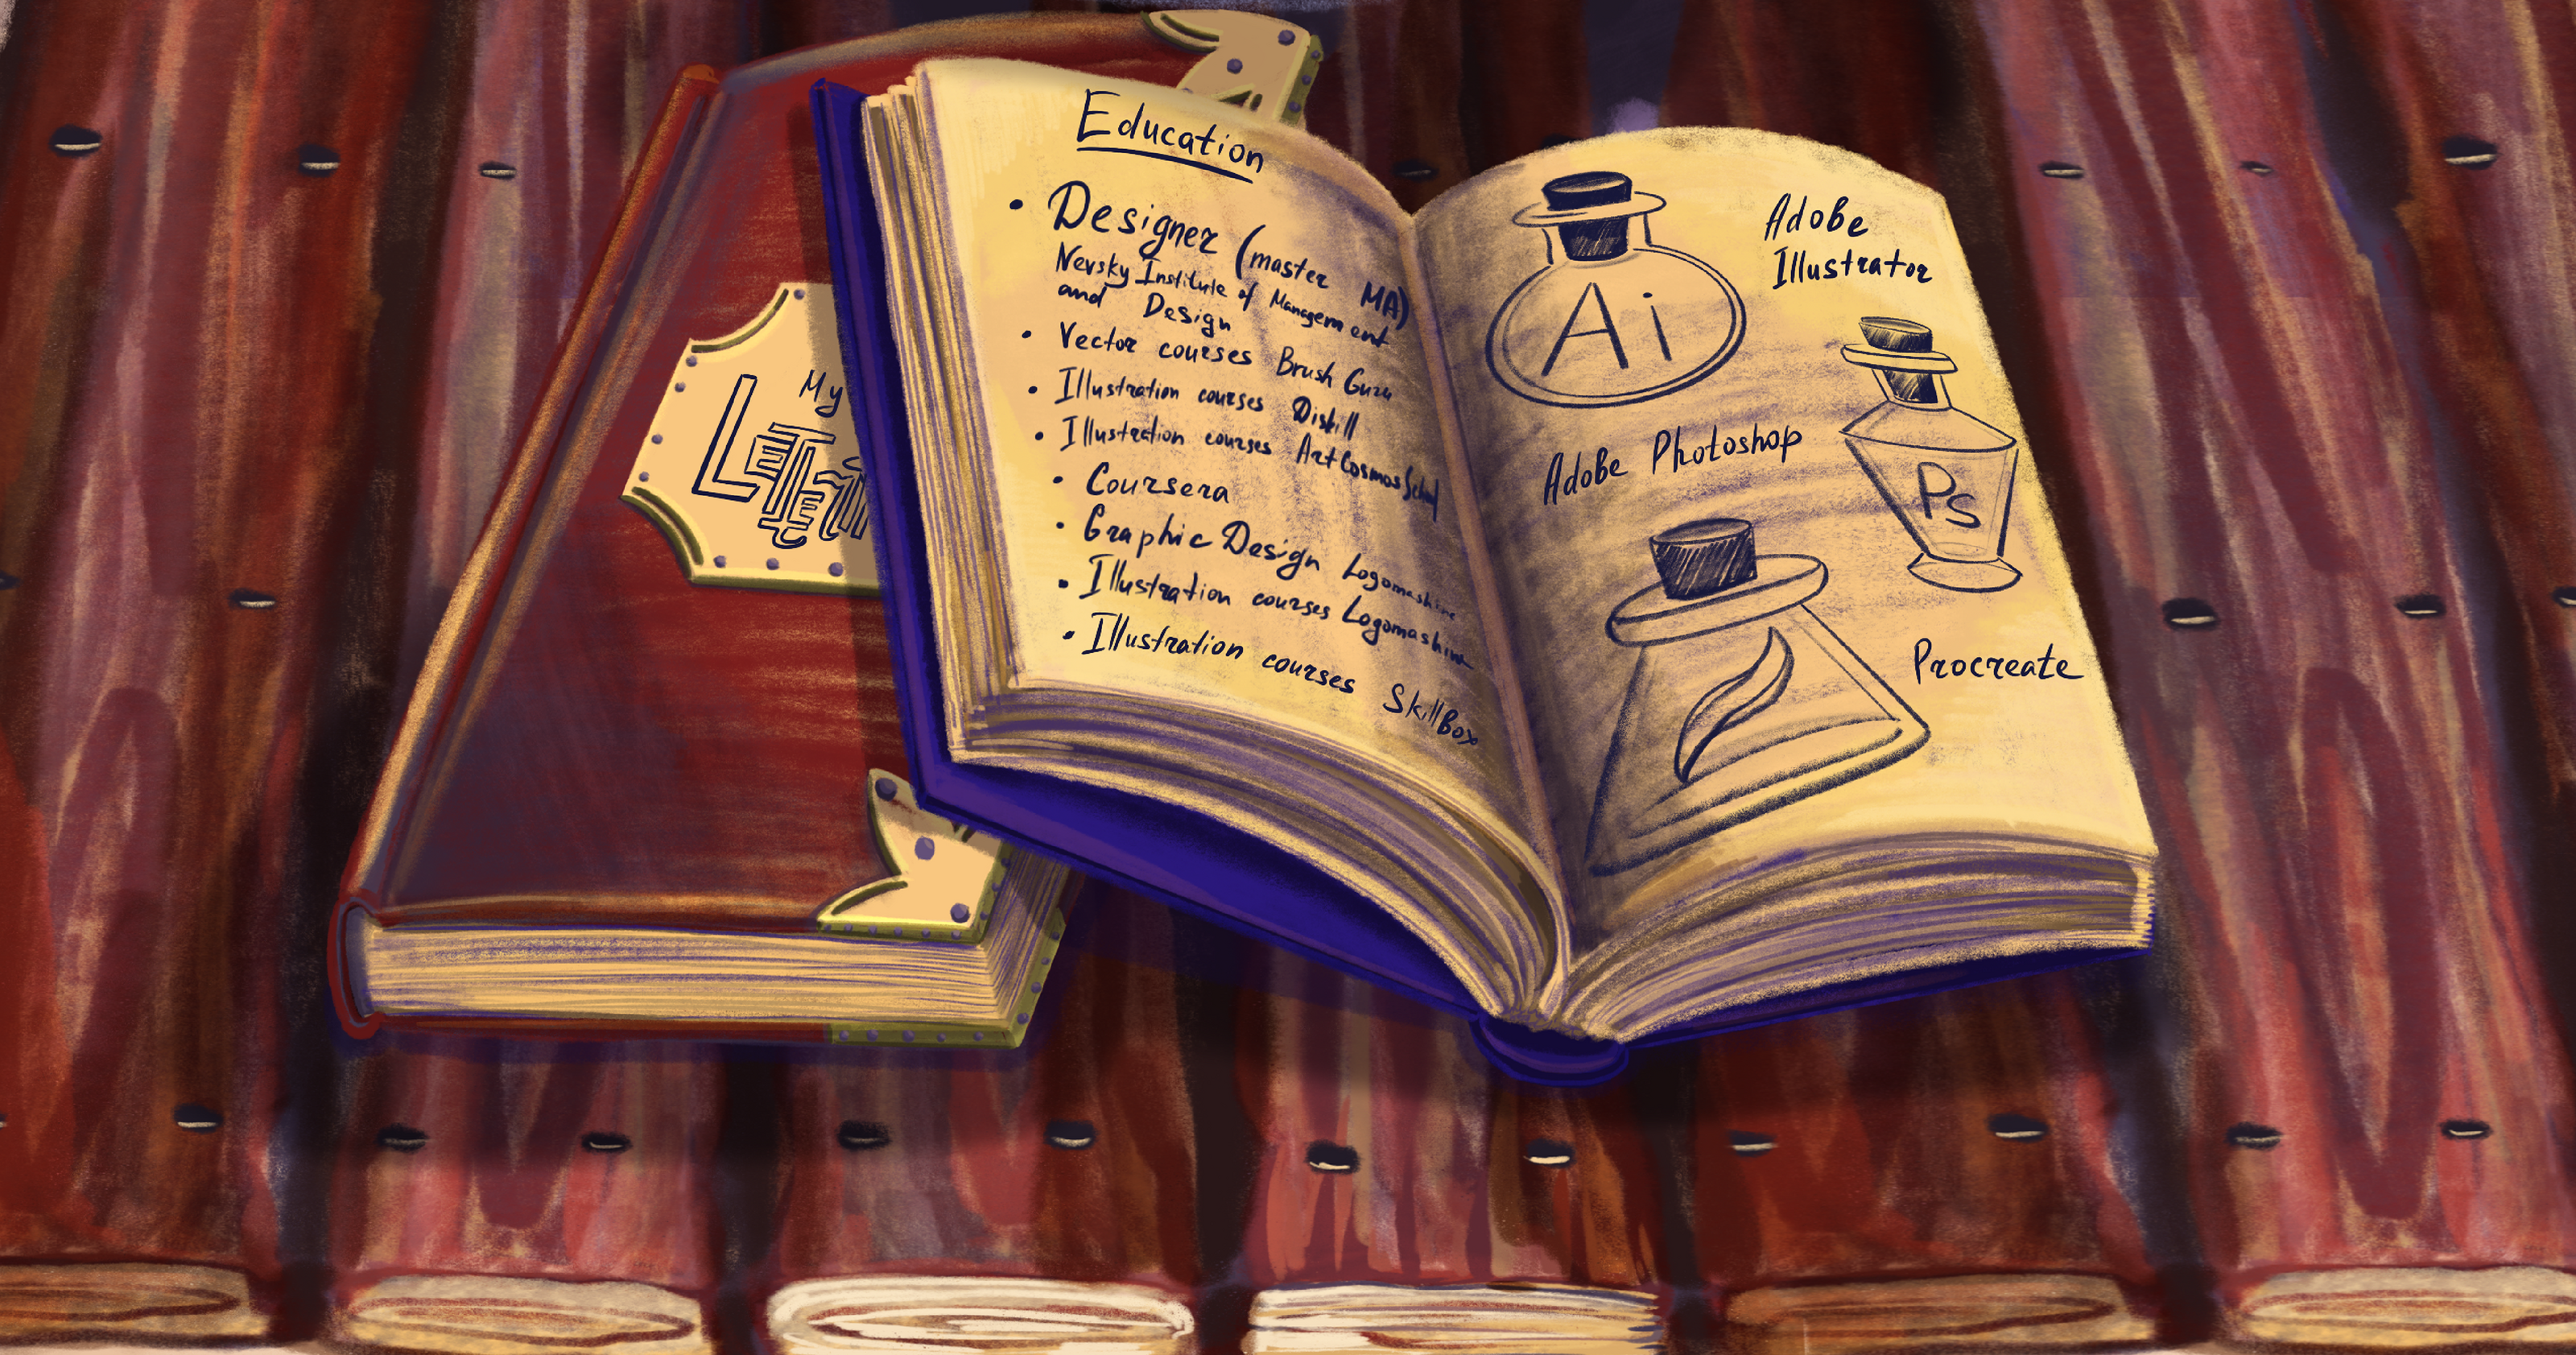 My
Education
• Designer (master MA)
Nevsky Institute of Management
and Design
• Vector courses Brush Guru
• Illustration courses Diskill
• Illustration courses ArtCosmosSchool
• Coursera
• Graphic Design Logomashine
• Illustration courses Logomashine
• Illustration courses SkillBox
Ai
Adobe
Illustrator
Adobe Photoshop
Ps
Procreate